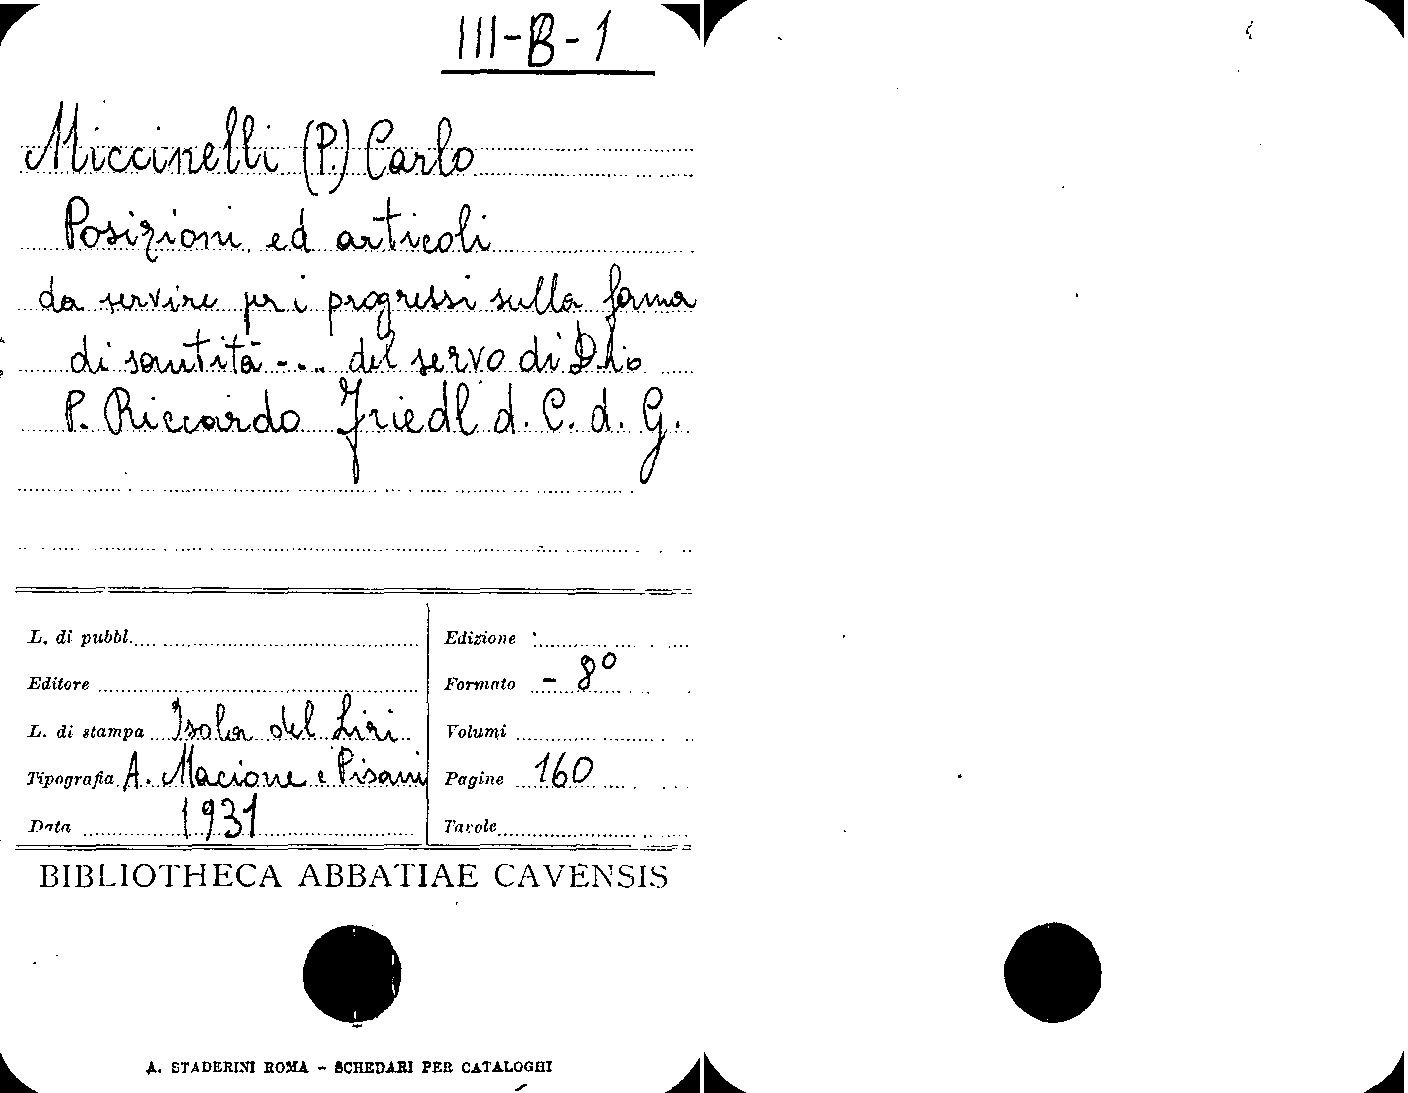 III-B-1
Miccinelli (P.) Carlo
Posizioni ed articoli
da servire per i progressi sulla fama
di santità -... del servo di Dio
P. Riccardo Friedl d. C. d. G.
L. di pubbl.
Edizione
Editore
Formato - 8º
L. di stampa Isola del Liri
Volumi
Tipografia A. Macione e Pisani
Pagine 160
Data 1931
Tavole
BIBLIOTHECA ABBATIAE CAVENSIS
A. STADERINI ROMA - SCHEDARI PER CATALOGHI